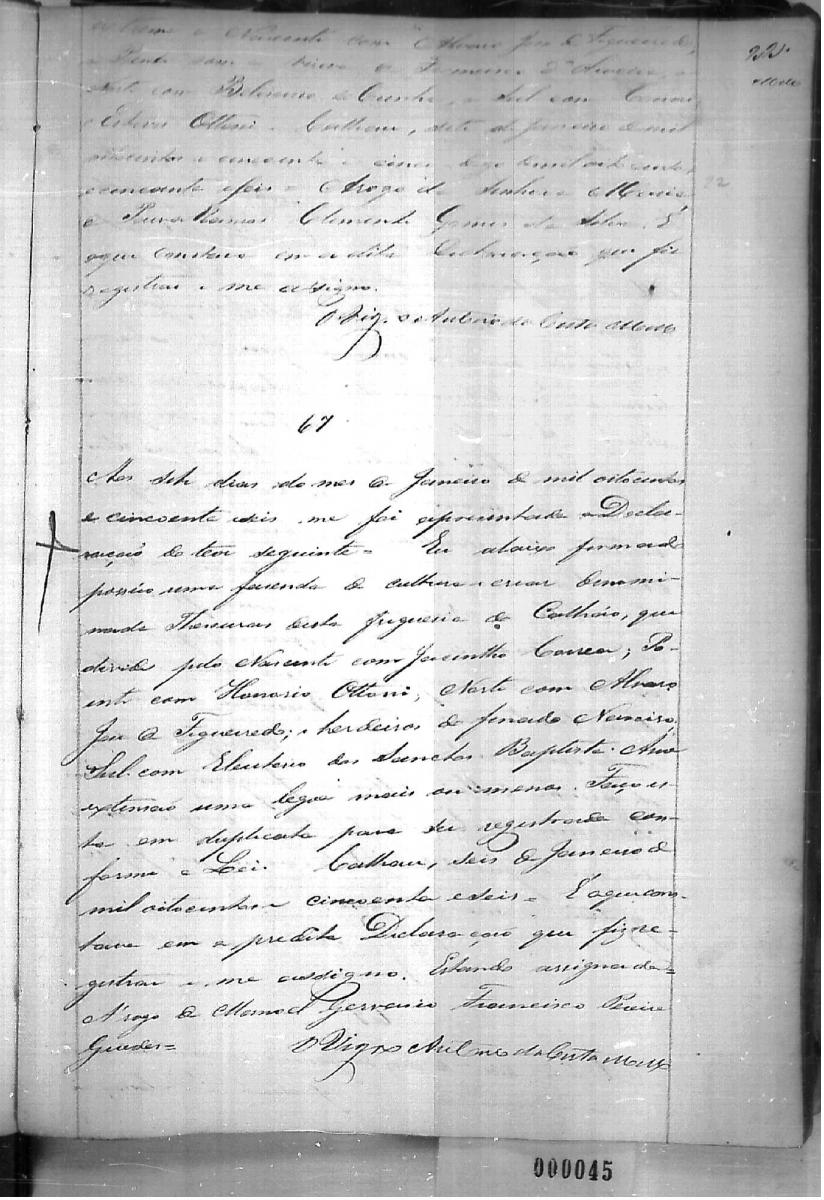 22.
Mello
e Nascente com Alvaro José de Figueiredo,
Poente com a viuva de Francisco
Norte com Belisario da Cunha, e Sul com
Esteves Ottoni. Calhau, sete de Janeiro de mil
oitocentos e cincoenta e cinco digo de mil oito centos
e cincoenta e seis = Arogo da Senhora Maria
22
Clemente Gomes da Silva. E
o que constava em a dita Declaração que fiz
registrar e me assigno.
O Vigr.o Antonio da Costa Mello
67
Aos sete dias do mes de Janeiro de mil oitocentos
e cincoenta e seis me foi apresentada a Decla-
ração do teor seguinte = Eu abaixo firmado
possuo uma fazenda de cultura e criar denomi-
nada Thesouras desta freguesia do Calháo, que
divide pelo Nascente com Jacintho Correa; Po-
ente com Honorio Ottoni; Norte com Alvaro
José de Figueiredo; e herdeiros do finado Narciso;
Sul com Eleuterio dos Sanctos Baptista. Sua
extensão uma legoa mais ou menos. Faço es-
ta em duplicata para ser registrada con-
forme a Lei. Calhau, seis de Janeiro de
mil oitocentos e cincoenta e seis = E o que cons-
tava em a predita Declaração que fiz re-
gistrar e me assigno. Estando assignada =
A rogo de Manoel Gervasio Francisco Pereira
Guedes =
O Vigr.o Antonio da Costa Mello
000045